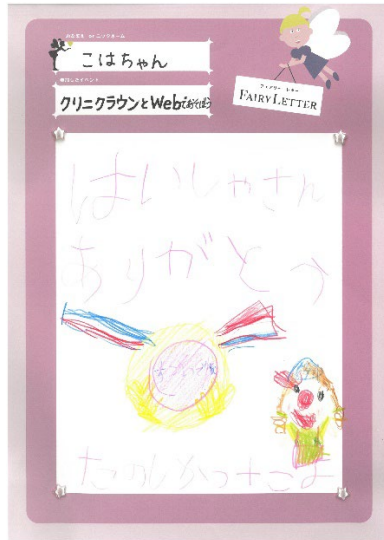 お名前 or ニックネーム
こはちゃん
参加したイベント
クリニクラウンとWebであそぼう
フェアリー レター
FAIRY LETTER
はいしゃさん
ありがとう
たのしかったよ